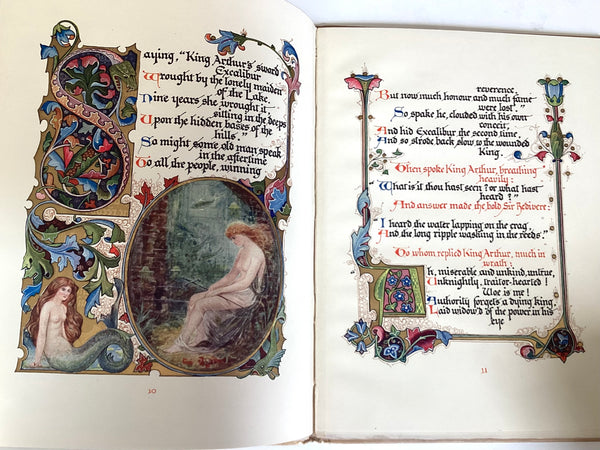 Saying, "King Arthur's sword
Excalibur
Wrought by the lonely maiden
of the Lake.
Nine years she wrought it
sitting in the deeps
Upon the hidden bases of the
hills."
So might some old man speak
in the aftertime
To all the people, winning
10
reverence,
But now much honour and much fame
were lost."
So spake he, clouded with his own
conceit,
And hid Excalibur the second time,
And so strode back slow to the wounded
King.
Then spoke King Arthur, breathing
heavily:
"What is it thou hast seen? or what hast
heard?"
And answer made the bold Sir Bedivere:
I heard the water lapping on the crag,
And the long ripple washing in the reeds."
To whom replied King Arthur, much in
wrath:
Ah, miserable and unkind, untrue,
Unknightly, traitor-hearted!
Woe is me!
Authority forgets a dying king,
Laid widow'd of the power in his
eye
11